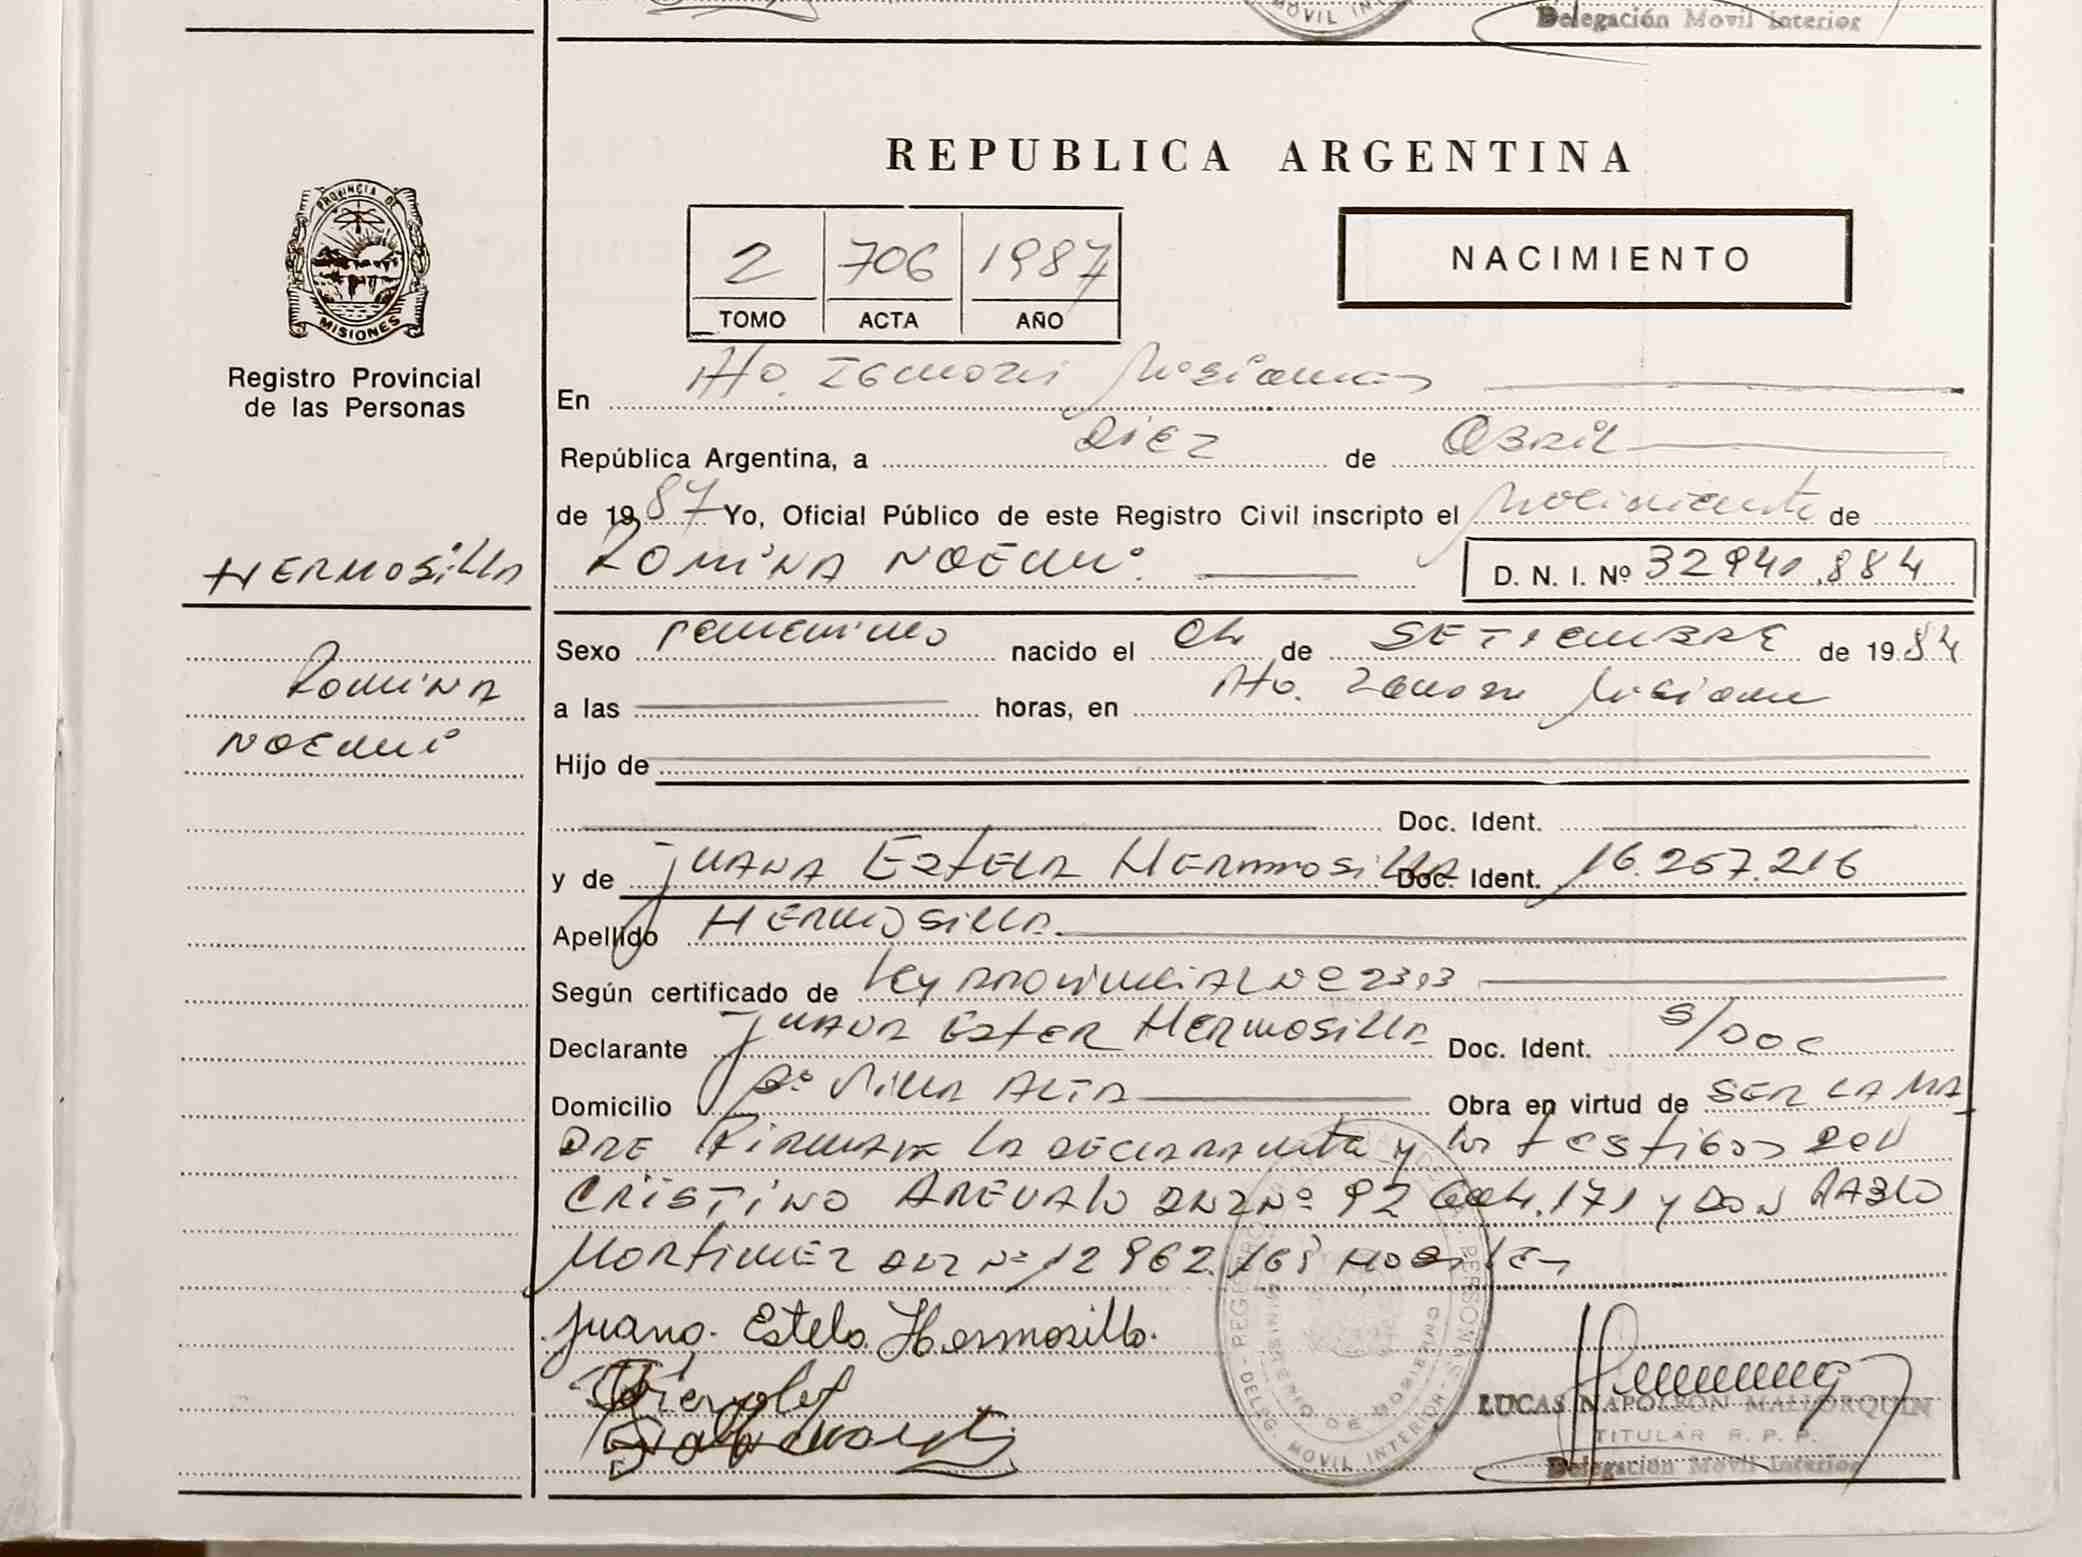 MOVIL INT
Delegación Movil Interior
REPUBLICA ARGENTINA
PROVINCIA DE
MISIONES
Registro Provincial
de las Personas
2 706 1987
TOMO ACTA AÑO
NACIMIENTO
En
República Argentina, a DIEZ de Abril
de 1987 Yo, Oficial Público de este Registro Civil inscripto el Nacimiento de
HERMOSILLA
ROMINA NOEMI.
D. N. I. Nº 32941.884
ROMINA
NOEMI
Sexo Femenino nacido el 04 de SETIEMBRE de 1984
a las horas, en Misiones
Hijo de
Doc. Ident.
y de JUANA EsTELA HERMOSILLA Doc. Ident. 16.257.216
Apellido HERMOSILLA
Según certificado de Ley PROVINCIAL Nº 2393
Declarante JUANA EsTER HERMOSILLA Doc. Ident. S/DOC
Domicilio Bº VILLA ALTA Obra en virtud de SER LA MA
DRE FIRMAN LA DECLARANTE y los testigos DON
CRISTINO AREVALO DNI Nº 92 604.171 y DON PABLO
MARTINEZ DNI Nº 12 962.168
Juana Estela Hermosilla.
LUCAS NAPOLEON MALLORQUIN
TITULAR R. P. P.
Delegación Movil Interior
DELEG. MOVIL INTERIOR
MINISTERIO DE GOBIERNO